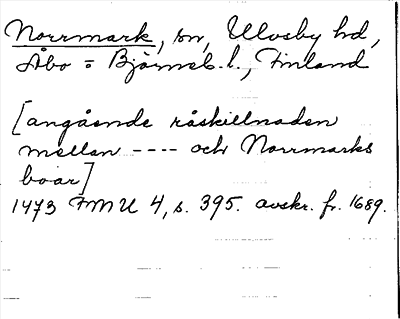 Norrmark, sn, Ulvsby hd,
Åbo = Björneb. l., Finland
[angående råskillnaden
mellan ---- och Norrmarks
boar]
1473 FMU 4, s. 395. avskr. fr. 1689.